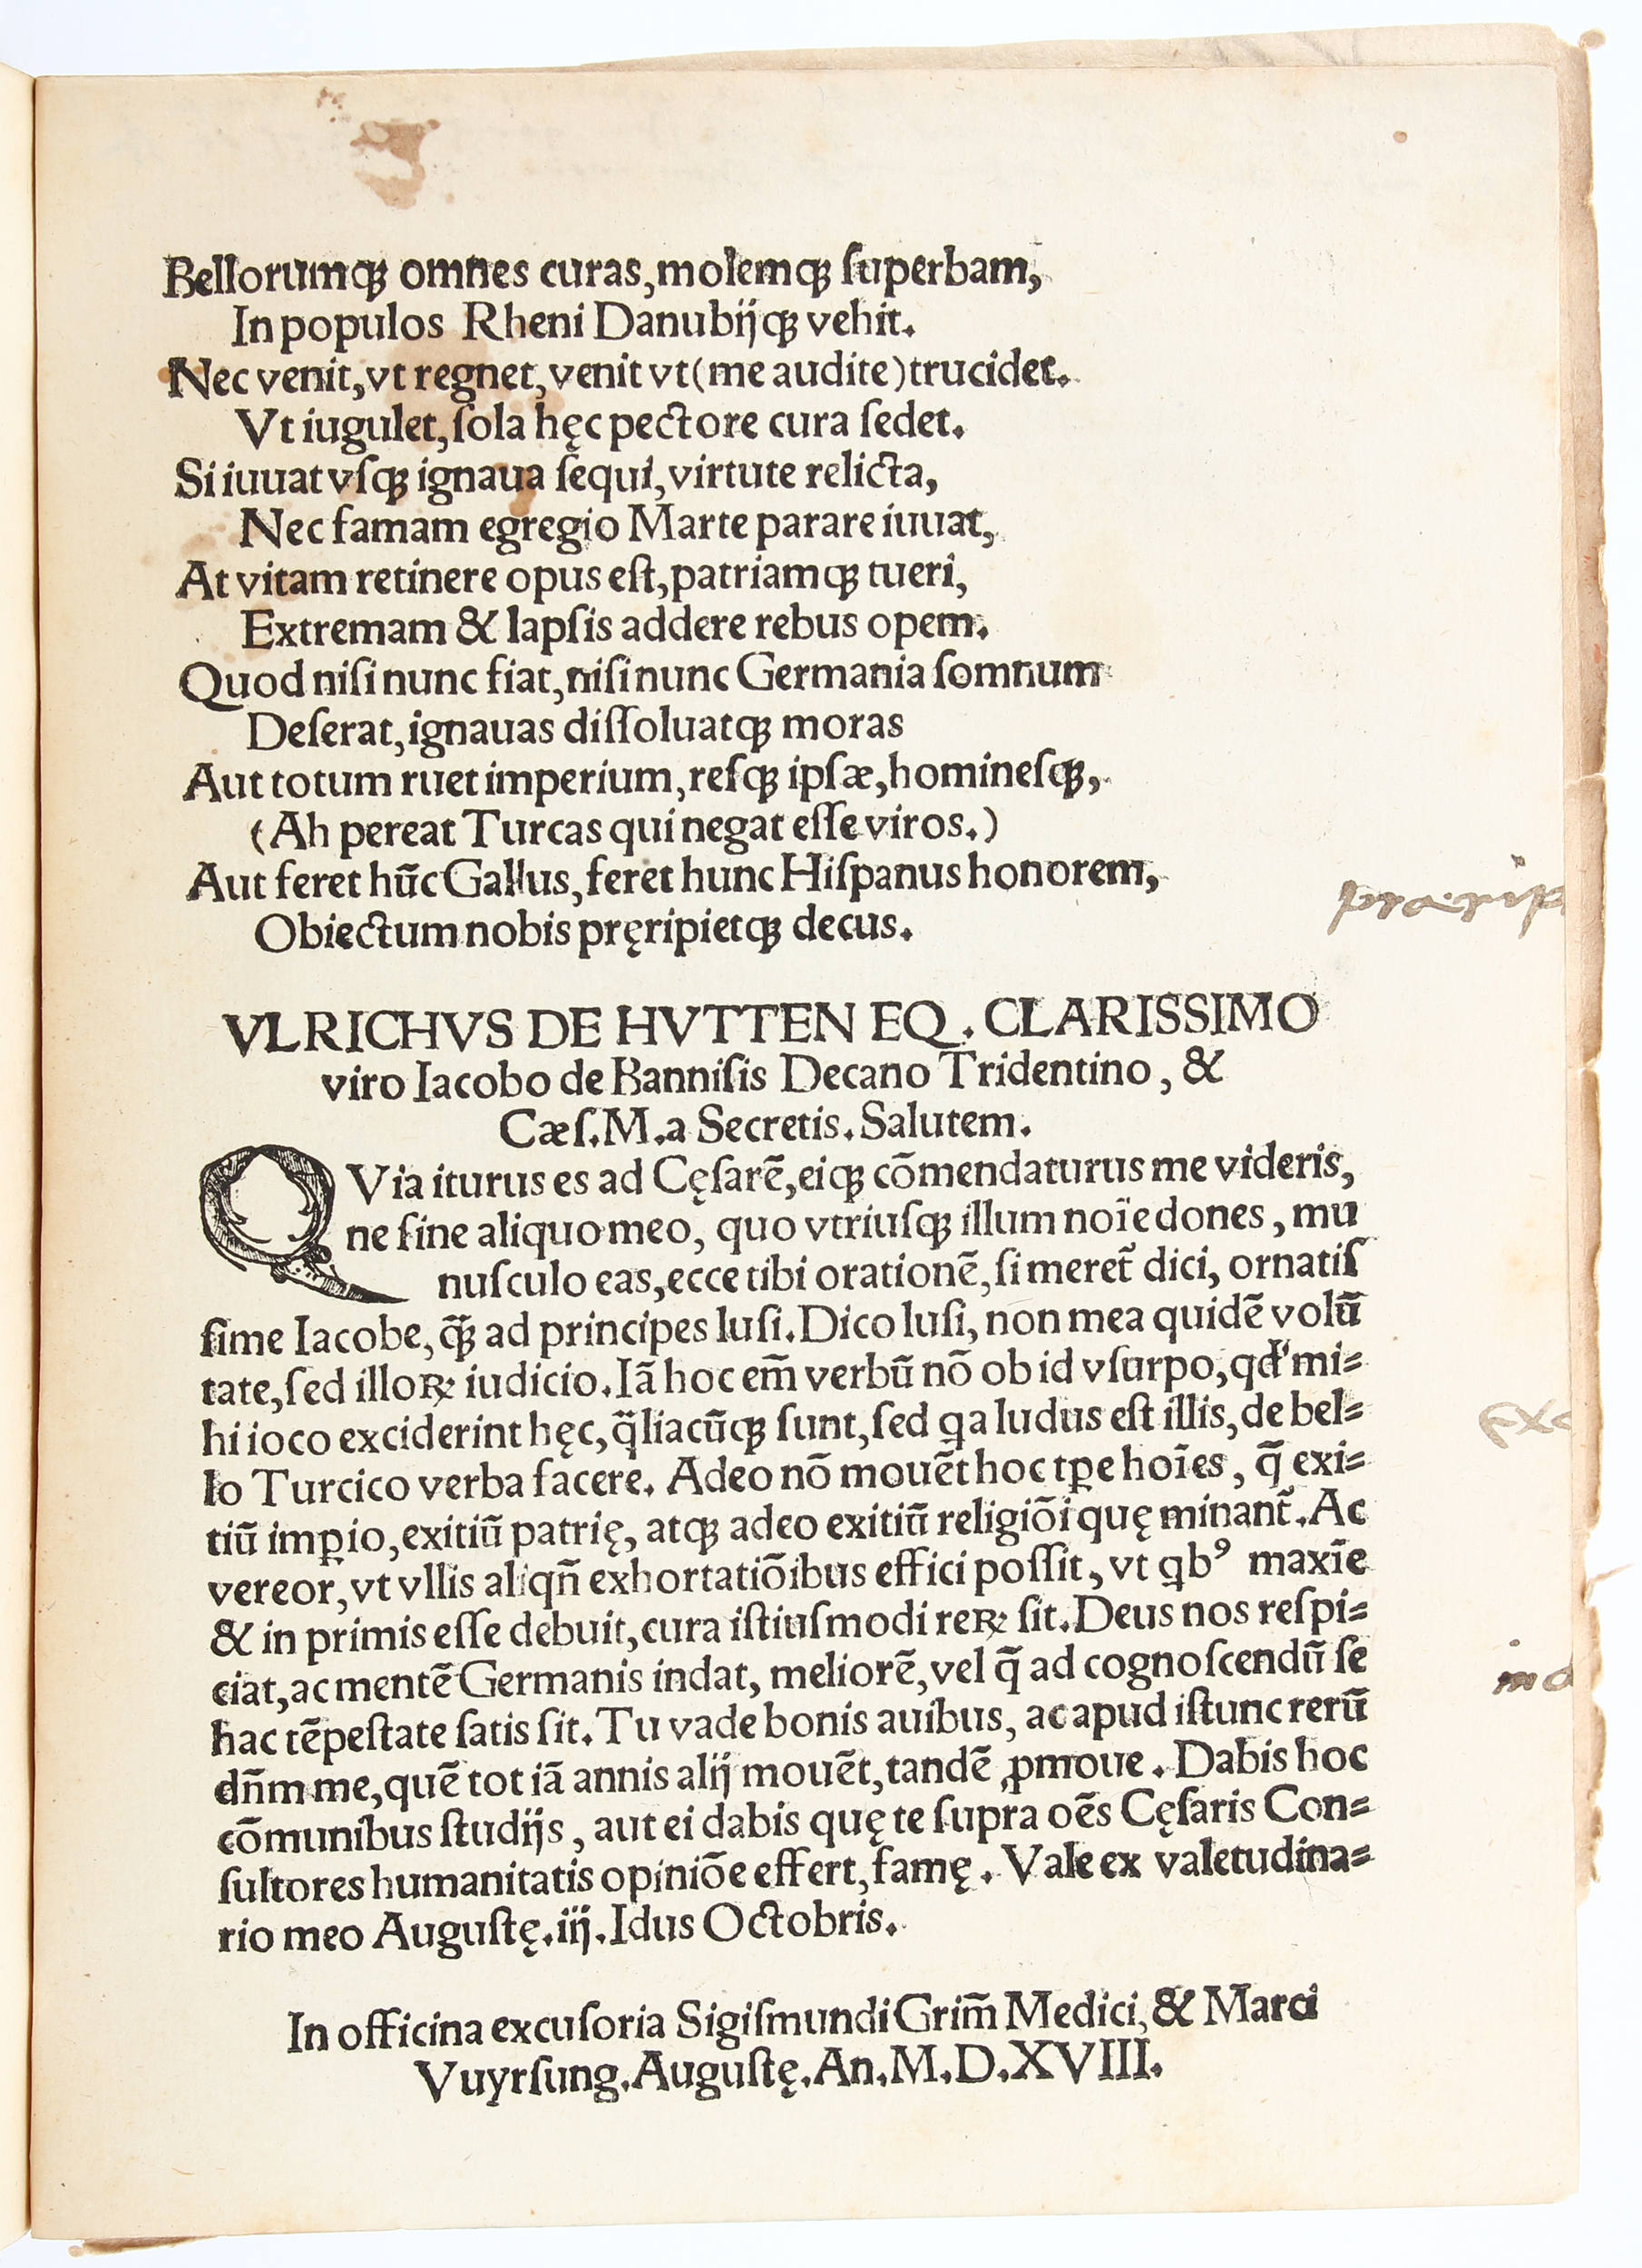 Bellorumqꝫ omnes curas, molemqꝫ ſuperbam,
In populos Rheni Danubijqꝫ vehit.
Nec venit, vt regnet, venit vt (me audite) trucidet.
Vt iugulet, ſola hęc pectore cura ſedet.
Si iuuat vſqꝫ ignaua ſequi, virtute relicta,
Nec famam egregio Marte parare iuuat,
At vitam retinere opus eſt, patriamqꝫ tueri,
Extremam & lapſis addere rebus opem.
Quod niſi nunc fiat, niſi nunc Germania ſomnum
Deſerat, ignauas diſſoluatqꝫ moras
Aut totum ruet imperium, reſqꝫ ipſæ, homineſqꝫ,
(Ah pereat Turcas qui negat eſſe viros.)
Aut feret hūc Gallus, feret hunc Hiſpanus honorem,
Obiectum nobis pręripietqꝫ decus.
prærip
VLRICHVS DE HVTTEN EQ. CLARISSIMO
viro Iacobo de Banniſis Decano Tridentino, &
Cæſ. M. a Secretis. Salutem.
QVia iturus es ad Cęſarē, eiqꝫ cōmendaturus me videris,
ne ſine aliquo meo, quo vtriuſqꝫ illum noīe dones, mu
nuſculo eas, ecce tibi orationē, ſi meret̄ dici, ornatiſ
ſime Iacobe, q̄ꝫ ad principes luſi. Dico luſi, non mea quidē volū
tate, ſed illoꝝ iudicio. Iā hoc em̄ verbū nō ob id vſurpo, qđ mi⸗
hi ioco exciderint hęc, q̄liacūqꝫ ſunt, ſed ꝗa ludus eſt illis, de bel⸗
exc
lo Turcico verba facere. Adeo nō mouēt hoc tꝑe hoīes, q̄ exi⸗
tiū imꝑio, exitiū patrię, atqꝫ adeo exitiū religiōi quę minant̄. Ac
vereor, vt vllis aliqn̄ exhortatiōibus effici poſſit, vt ꝗbꝰ maxīe
& in primis eſſe debuit, cura iſtiuſmodi reꝝ ſit. Deus nos reſpi⸗
ciat, ac mentē Germanis indat, meliorē, vel q̄ ad cognoſcendū ſe
ind
hac tēpeſtate ſatis ſit. Tu vade bonis auibus, ac apud iſtunc rerū
dn̄m me, quē tot iā annis alij mouēt, tandē ꝓmoue. Dabis hoc
cōmunibus ſtudijs, aut ei dabis quę te ſupra oēs Cęſaris Con⸗
ſultores humanitatis opiniōe effert, famę. Vale ex valetudina⸗
rio meo Auguſtę. iij. Idus Octobris.
In officina excuſoria Sigiſmundi Grim̄ Medici, & Marci
Vuyrſung. Auguſtę. An. M. D. XVIII.